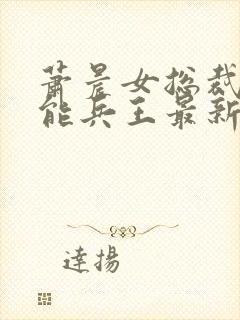 萧晨女总裁
能兵王最新
達揚